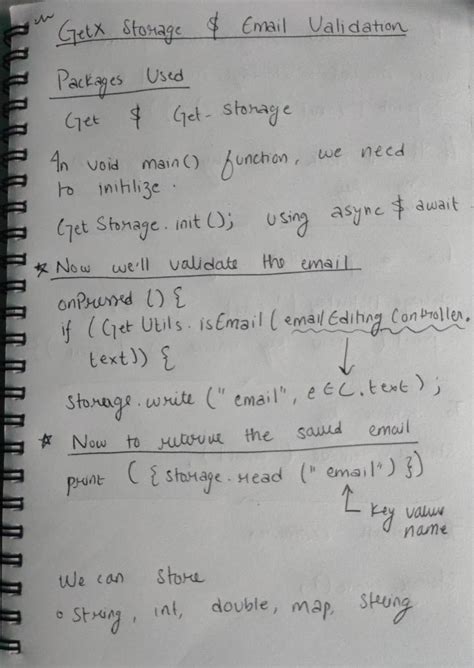 GetX Storage & Email Validation
Packages Used
Get & Get-storage
In void main() function, we need
to initilize.
Get Storage.init(); using async & await.
* Now we'll validate the email
onPressed () {
if (Get Utils.isEmail (emailEditing Controller.
text)) {
storage.write ("email", eEC.text);
* Now to retrive the saved email
print ({storage.read ("email")})
key value
name
We can store
o String, int, double, map, string